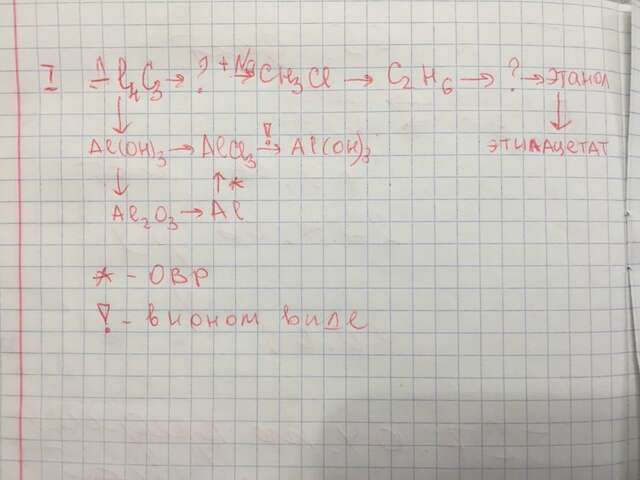 I Al₄C₃ → ? → CH₃Cl → C₂H₆ → ? → этанол
+ Na
↓ ↓
Al(OH)₃ → AlCl₃ →! Al(OH)₃ этилацетат
↓ ↑*
Al₂O₃ → Al
* - ОВР
! - в ионом виде